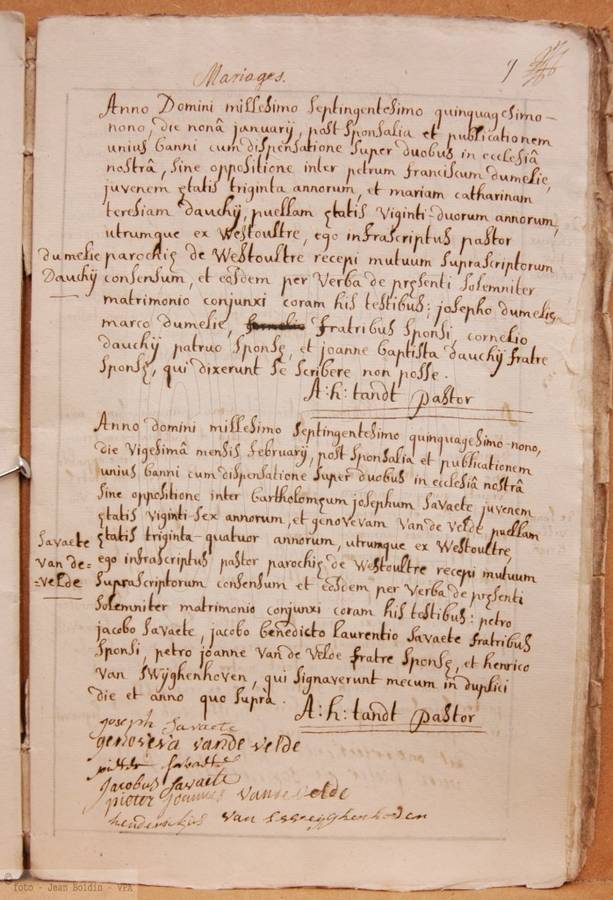 Mariages.
Anno Domini millesimo septingentesimo quinquagesimo-
nono, die nonâ januarij, post sponsalia et publicationem
unius banni cum dispensatione super duobus in ecclesiâ
nostrâ, sine oppositione inter petrum franciscum dumelie,
juvenem ętatis triginta annorum, et mariam catharinam
teresiam dauchij, puellam ętatis viginti-duorum annorum,
utrumque ex Westoultre, ego infrascriptus pastor
dumelie parochię de Westoultre recepi mutuum suprascriptorum
Dauchij consensum, et eosdem per verba de pręsenti solemniter
matrimonio conjunxi coram his testibus: josepho dumelie,
marco dumelie, fratribus sponsi, cornelio
dauchij patruo sponsę, et joanne baptista dauchij fratre
sponsę, qui dixerunt se scribere non posse.
A:h: tandt pastor
Anno domini millesimo septingentesimo quinquagesimo-nono,
die vigesimâ mensis februarij, post sponsalia et publicationem
unius banni cum dispensatione super duobus in ecclesiâ nostrâ
sine oppositione inter bartholomęum josephum savaete juvenem
ętatis viginti-sex annorum, et genovevam van de velde puellam
savaete ętatis triginta-quatuor annorum, utrumque ex Westoultre,
van de= ego infrascriptus pastor parochię de Westoultre recepi mutuum
=velde suprascriptorum consensum et eosdem per verba de pręsenti
solemniter matrimonio conjunxi coram his testibus: petro
jacobo savaete, jacobo benedicto laurentio savaete fratribus
sponsi, petro joanne van de velde fratre sponsę, et henrico
van swijghenhoven, qui signaverunt mecum in duplici
die et anno quo suprà.
A:h: tandt pastor
joseph savaete
genoveva vande velde
pieter savaete
jacobus savaete
pieter joannes vande velde
van
© foto - Jean Boldin - VPA